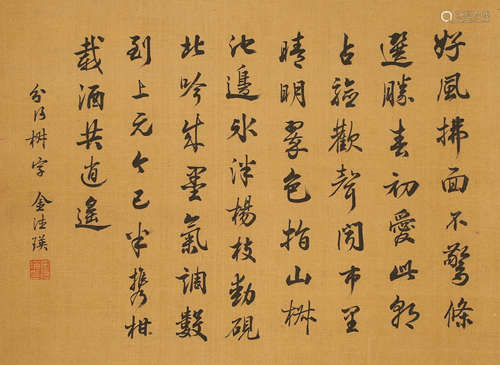 好風拂面不驚條
選勝春初愛此朝
占驗歡聲閧市里
晴明翠色指山椒
池邊冰泮楊枝動硯
北吟成墨氣調數
到上元今已半攜柑
載酒共逍遙
分得椒字 金德瑛